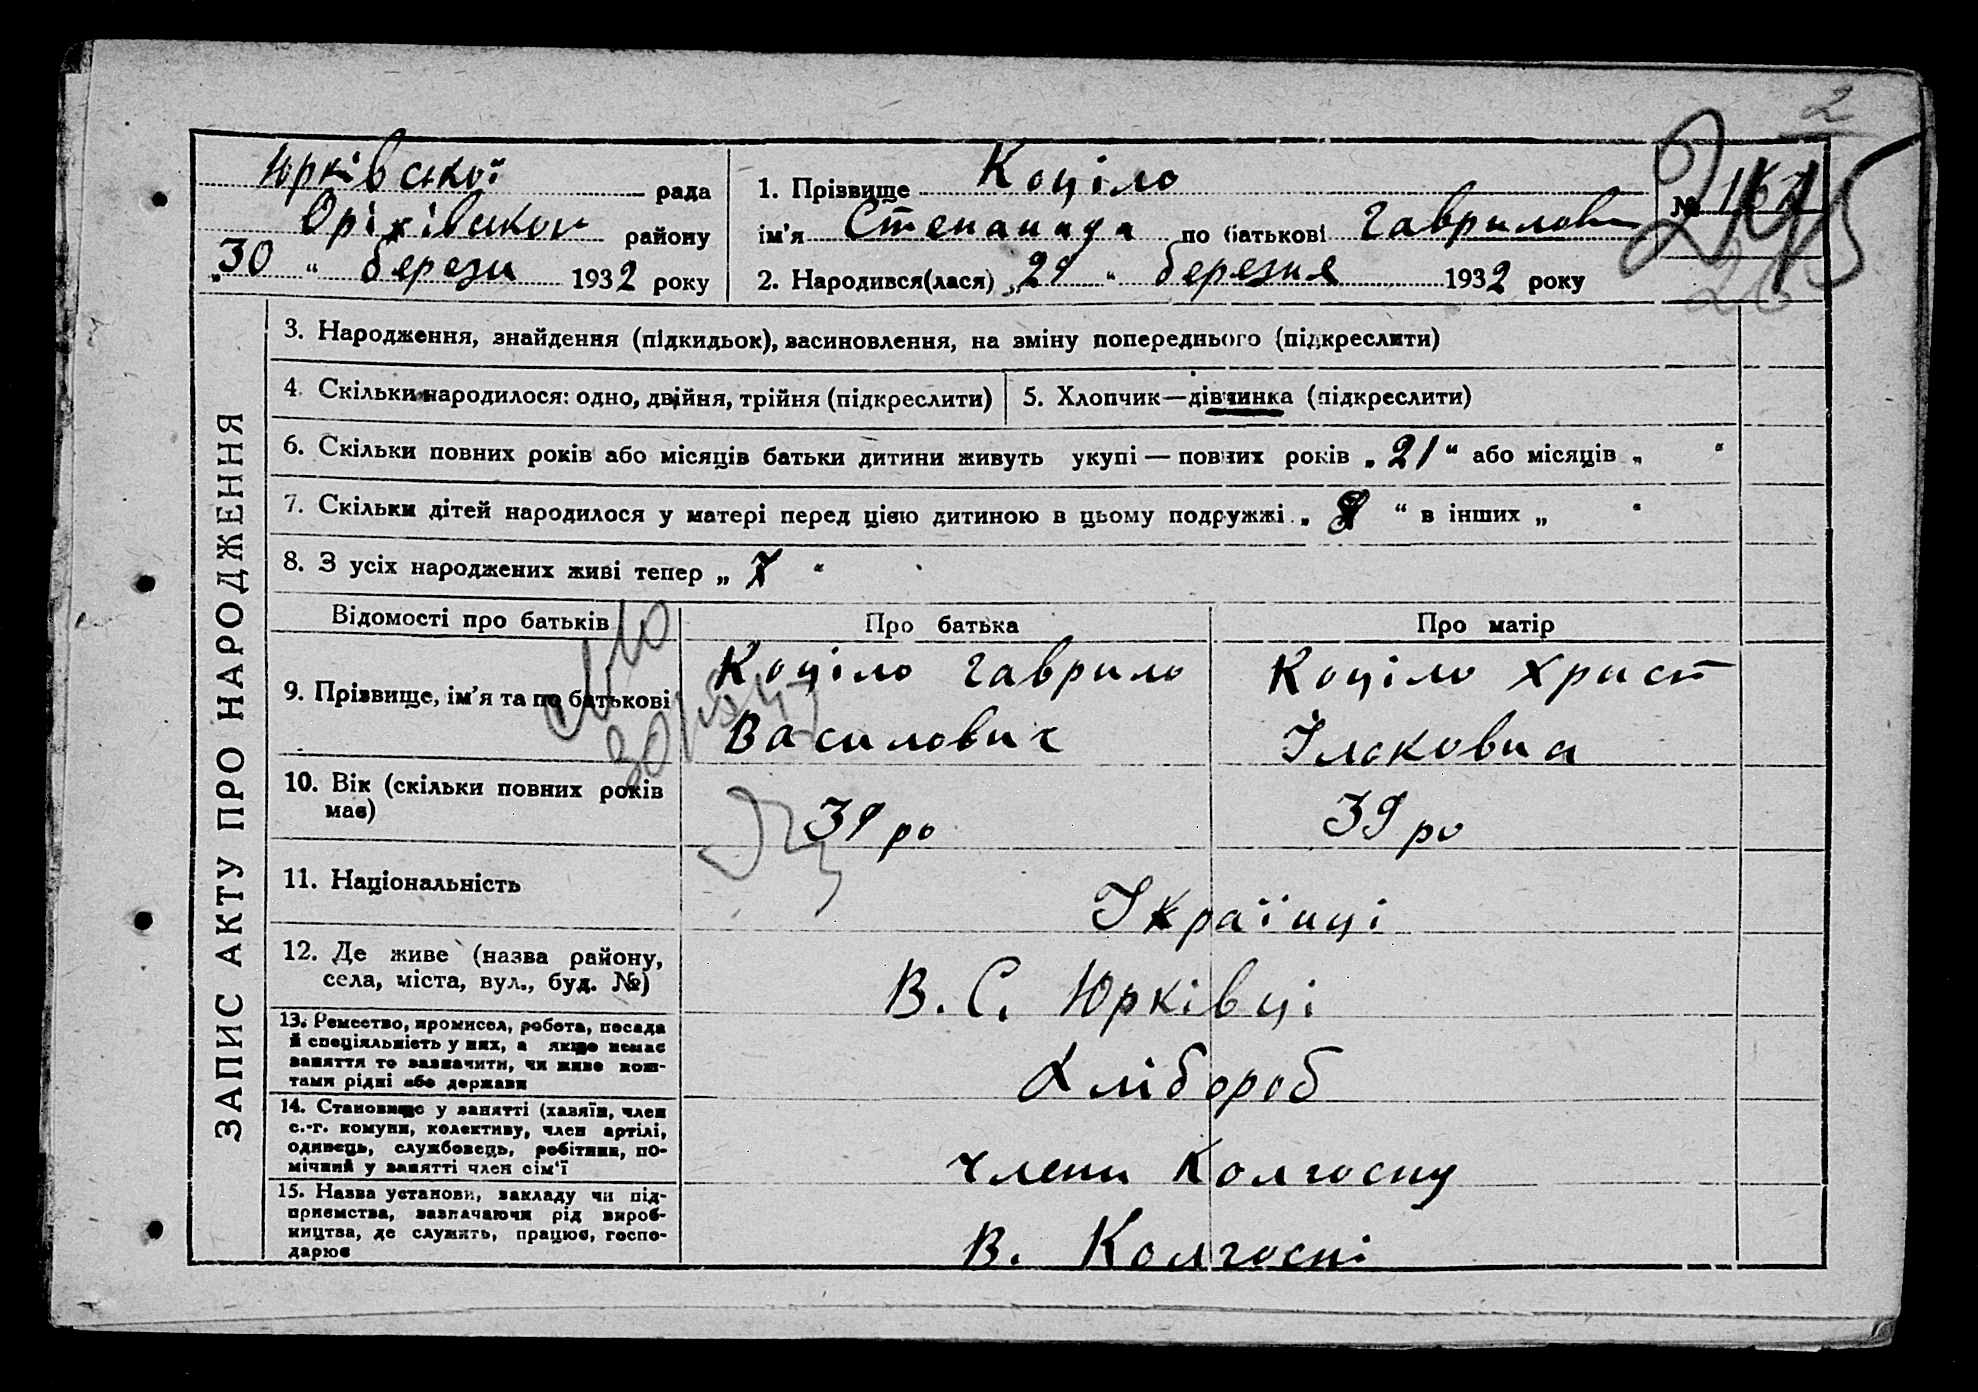 2
Юрківської рада
Оріхівського району
„30" березня 1932 року
1. Прізвище Коціло
ім'я Степанида по батькові Гаврилов
2. Народився(лася) „29" березня 1932 року
№
ЗАПИС АКТУ ПРО НАРОДЖЕННЯ
3. Народження, знайдення (підкидьок), васиновлення, на зміну попереднього (підкреслити)
4. Скільки народилося: одно, двійня, трійня (підкреслити)
5. Хлопчик—дівчинка (підкреслити)
6. Скільки повних років або місяців батьки дитини живуть укупі — повних років „21" або місяців „ "
7. Скільки дітей народилося у матері перед цією дитиною в цьому подружжі „ 8 " в інших „ "
8. З усіх народжених живі тепер „ 7 "
Відомості про батьків
Про батька
Про матір
9. Прізвище, ім'я та по батькові
Коціло Гаврило
Василович
Коціло Христ
Ілаковна
10. Вік (скільки повних років
має)
39 ро
39 ро
11. Національність
Українці
12. Де живе (назва району,
села, міста, вул., буд. №)
В. С. Юрківці
13. Ремество, промисел, робота, посада
й спеціяльність у них, а якщо немає
заняття то зазначити, чи живе кош-
тами рідні або держави
Хлібороб
14. Становище у занятті (хазяїн, член
с.-г. комуни, колективу, член артілі,
одинець, службовець, робітник, по-
мічний у занятті член сім'ї
члени Колгоспу
15. Назва установи, закладу чи під-
приємства, зазначаючи рід вироб-
ництва, де служить, працює, госпо-
дарює
В. Колгоспі